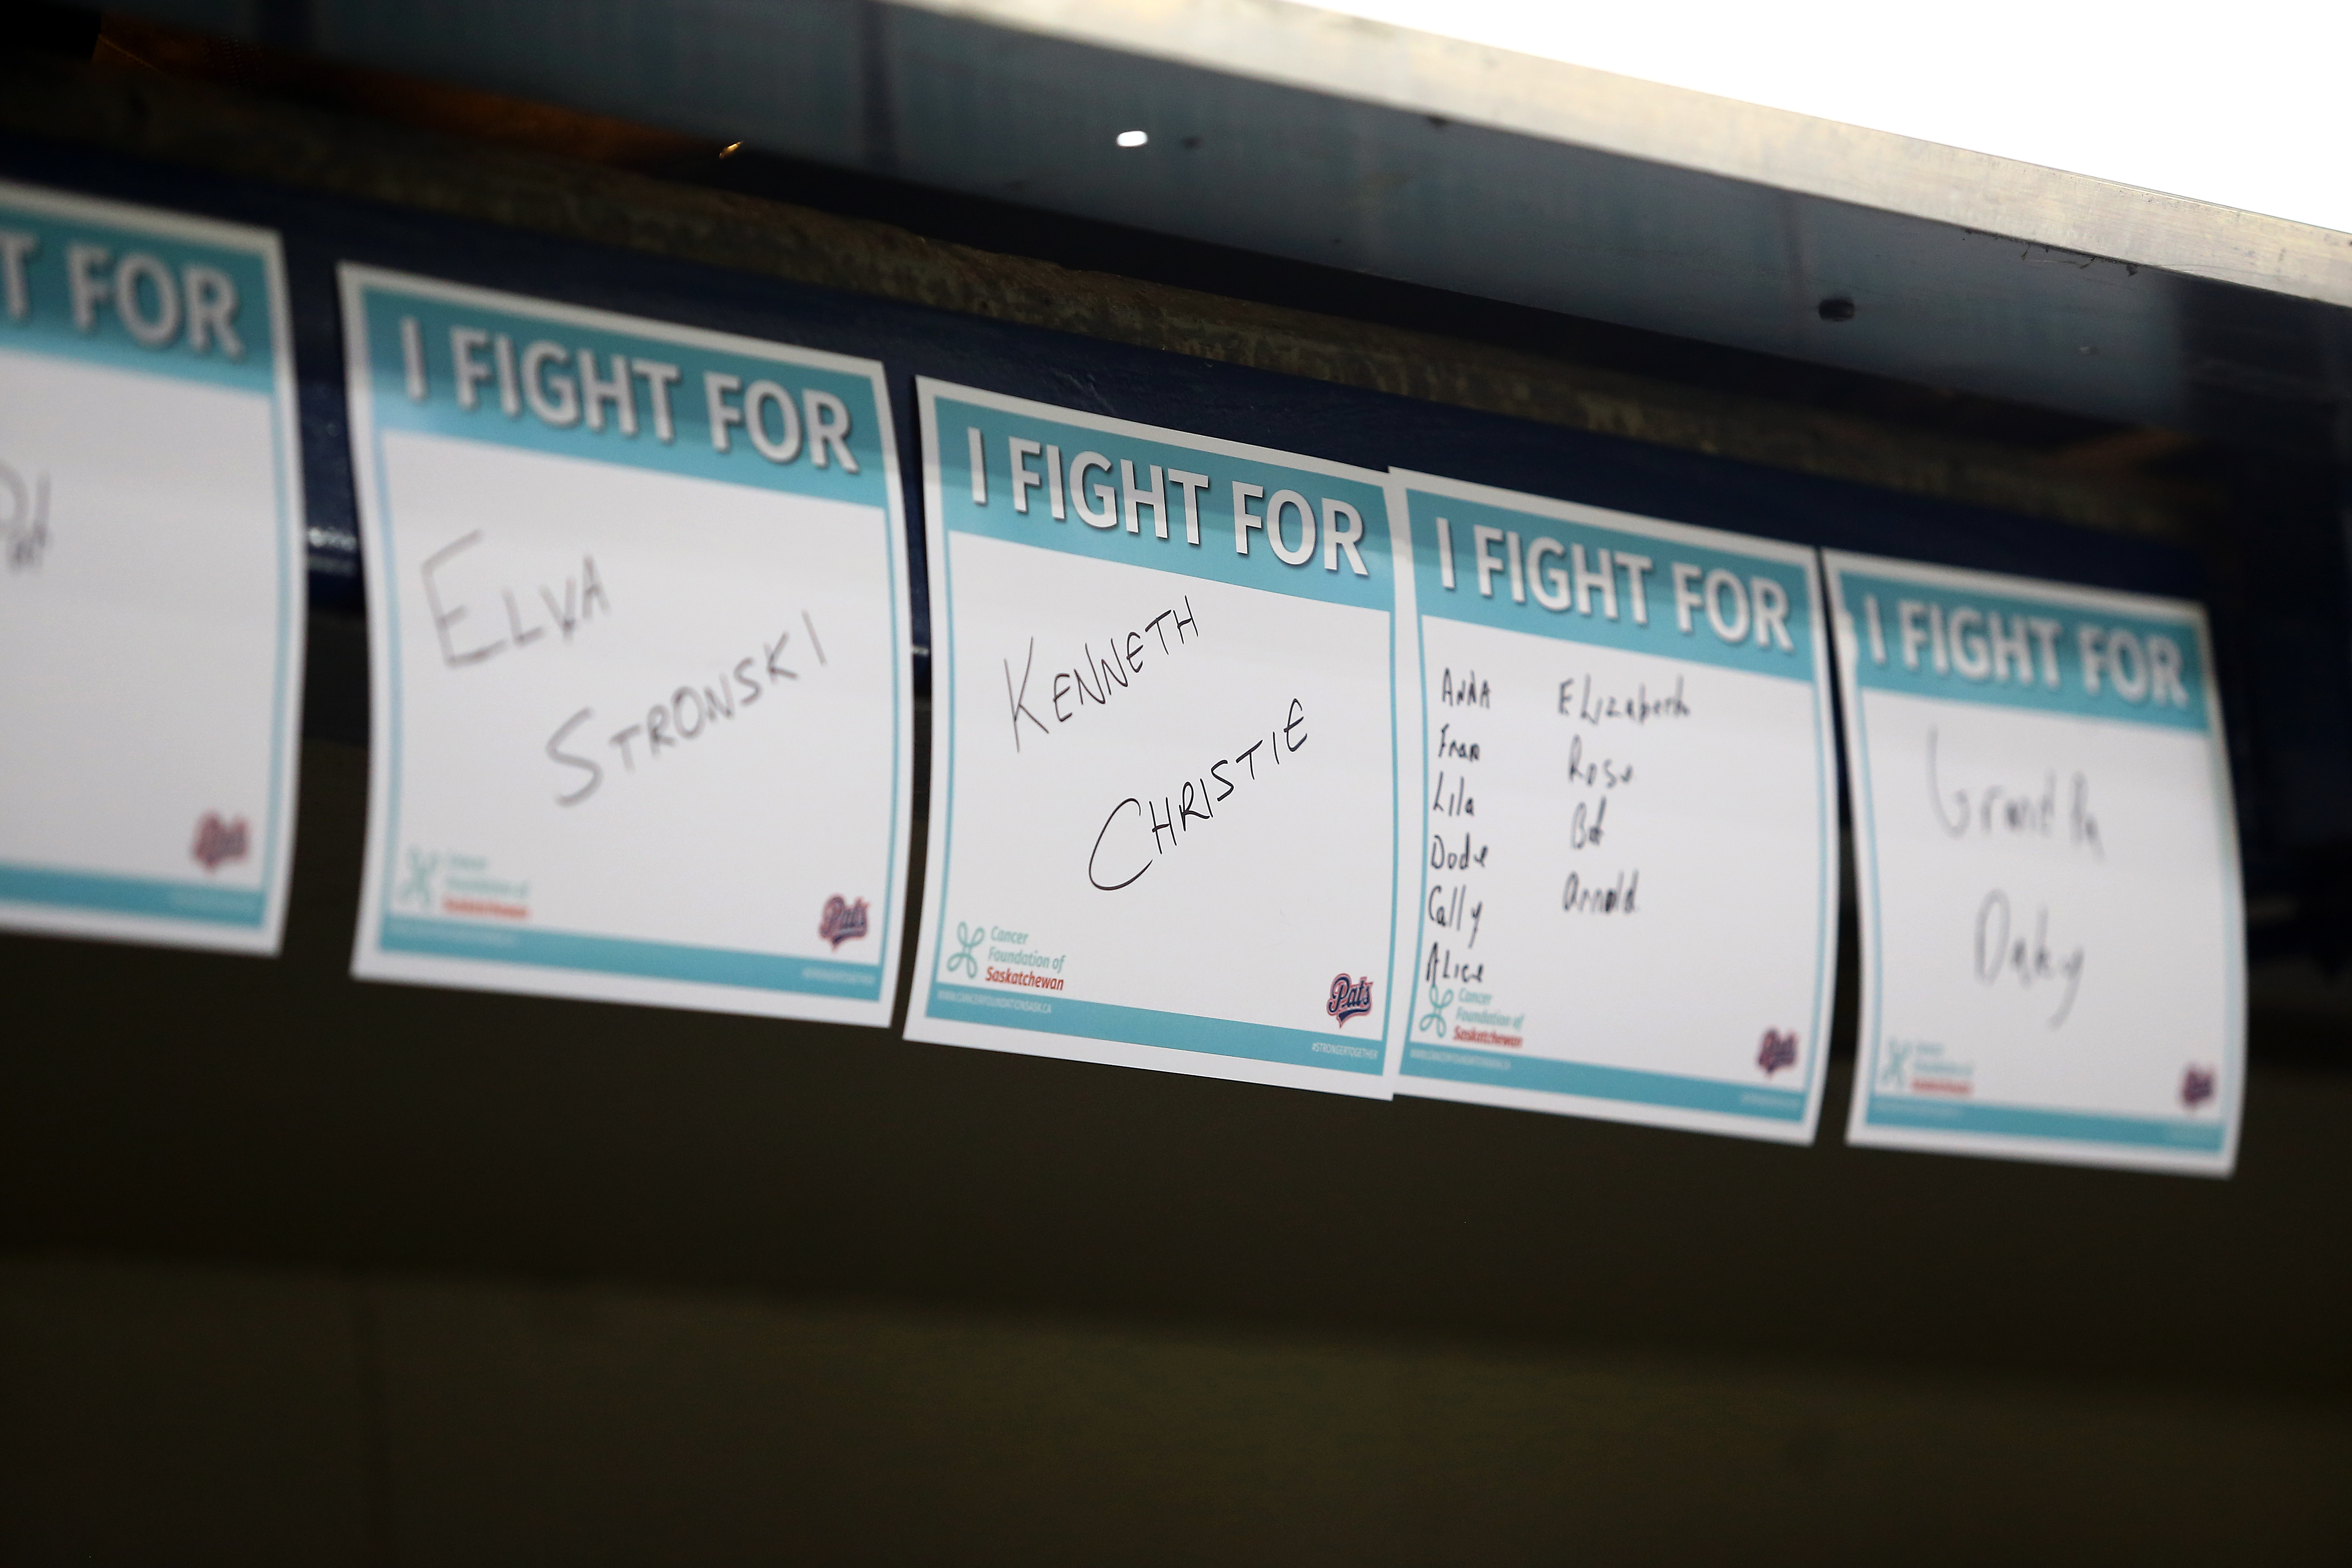 T FOR
Pats
I FIGHT FOR
ELVA
STRONSKI
Cancer
Foundation of
Saskatchewan
Pats
I FIGHT FOR
KENNETH
CHRISTIE
Cancer
Foundation of
Saskatchewan
Pats
WWW.CANCERFOUNDATIONSASK.CA
#STRONGERTOGETHER
I FIGHT FOR
ANNA
Fran
Lila
Dode
Cally
ALice
ELizabeth
Rose
Arnold
Cancer
Foundation of
Saskatchewan
Pats
WWW.CANCERFOUNDATIONSASK.CA
I FIGHT FOR
Cancer
Foundation of
Saskatchewan
Pats